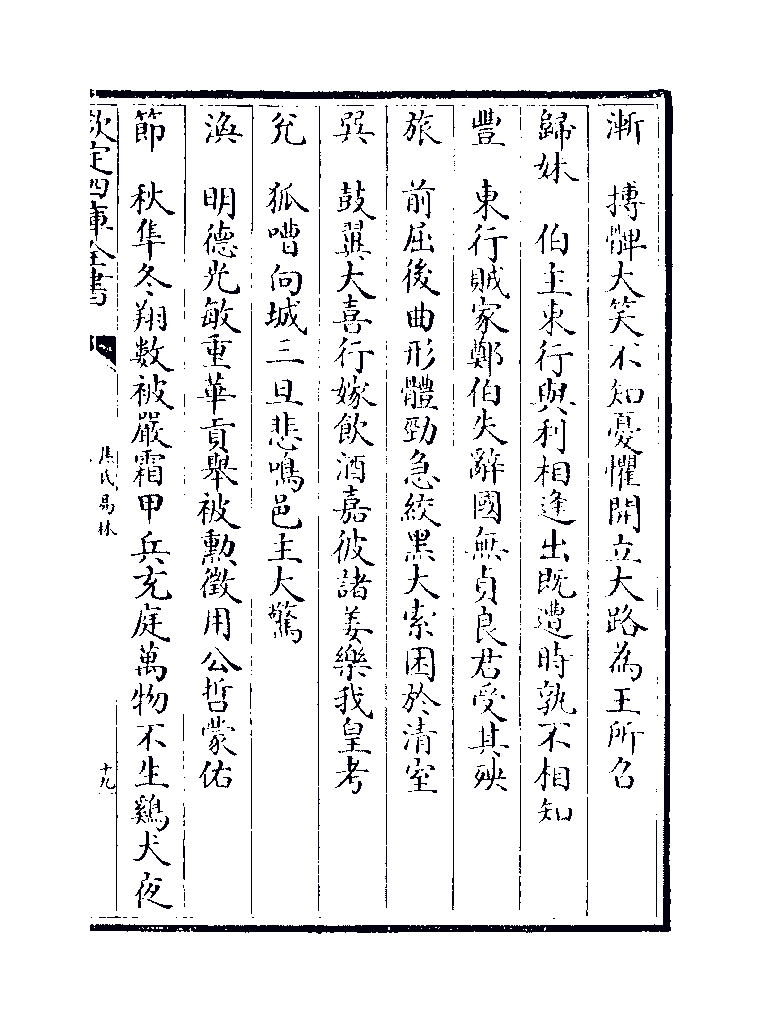 漸　摶髀大笑不知憂懼開立大路為王所召
歸妹　伯主東行與利相逢出既遭時孰不相知
豐　東行賊家鄭伯失辭國無貞良君受其殃
旅　前屈後曲形體勁急絞黑大索困於清室
巽　鼓翼大喜行嫁飲酒嘉彼諸姜樂我皇考
兌　狐嘈向城三旦悲鳴邑主大驚
渙　明德光敏重華貢舉被勲徵用公哲蒙佑
節　秋隼冬翔數被嚴霜甲兵充庭萬物不生鷄犬夜
欽定四庫全書
焦氏易林
十九